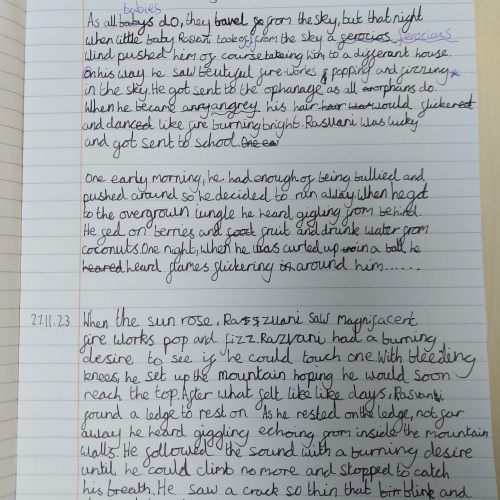 babies
As all babys do, they travel go from the sky, but that night
when little baby Rasvani took off from the sky a gerocios ferocious
wind pushed him of course taking him to a different house.
On his way he saw beutiful fire works popping and fizzing *
in the sky. He got sent to the ophanage as all orphans do.
When he became anryangrey his hair hair war would flickered
and danced like fire burning bright. Rasvani was lucky
and got sent to school. One ea
One early morning, he had enough of being bullied and
pushed around so he decided to run away. When he got
to the overgrown jungle he heard gigling from behind.
He fed on berries and food fruit and drunk water from
coconuts. One night, when he was curled up in a ball he
heared heard flames flickering in around him......
22.11.23 When the sun rose, Razvani saw magnifacent
fire works pop and fizz. Razvani had a burning
desire to see if he could touch one. With bleeding
knees, he set up the mountain hoping he would soon
reach the top. After what felt like like days, Rasvani
found a ledge to rest on. As he rested on the ledge, not far
away he heard giggling echoing from inside the mountain
walls. He followed the sound with a burning desire
until he could climb no more and stopped to catch
his breath. He saw a crack so thin that bin blink and